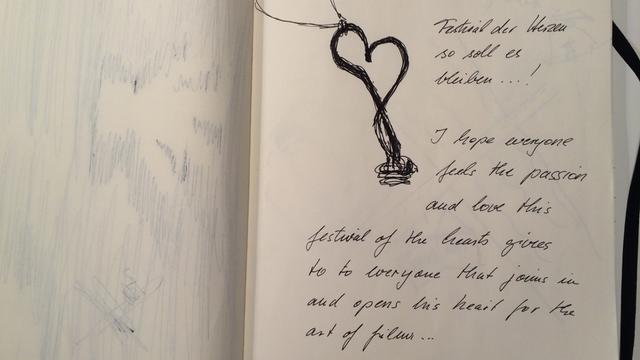 Festival der Herzen
so soll es
bleiben...!
I hope everyone
feels the passion
and love this
festival of the hearts gives
to to everyone that joins in
and opens his heart for the
art of film...